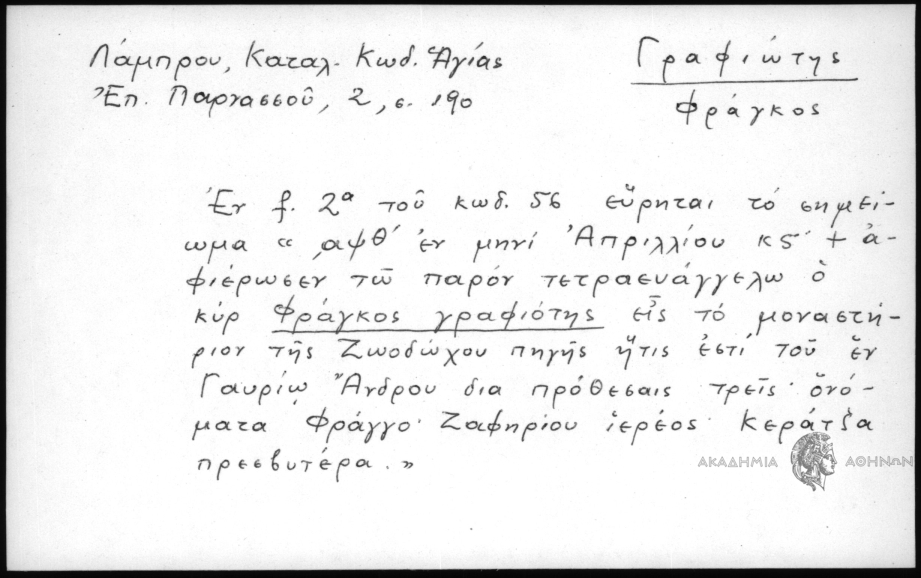 Λάμπρου, Καταλ. Κωδ. Ἁγίας
Ἐπ. Παρνασσοῦ, 2, σ. 190
Γραφιώτης
Φράγκος
Ἐν f. 2α τοῦ κωδ. 56 εὕρηται τό σημεί-
ωμα « ͵αψθ΄ ἐν μηνί Ἀπριλλίου κς΄ + ἀ-
φιέρωσεν τῶ παρόν τετραευάγγελω ὁ
κύρ Φράγκος γραφιότης εἷς τό μοναστή-
ριον τῆς Ζωοδώχου πηγῆς ἥτις ἐστί τοῦ ἐν
Γαυρίῳ Ἄνδρου δια πρόθεσαις τρεῖς· ὀνό-
ματα Φράγγο· Ζαφηρίου ἱερέος· Κεράτζα
πρεσβυτέρα.»
ΑΚΑΔΗΜΙΑ ΑΘΗΝΩΝ